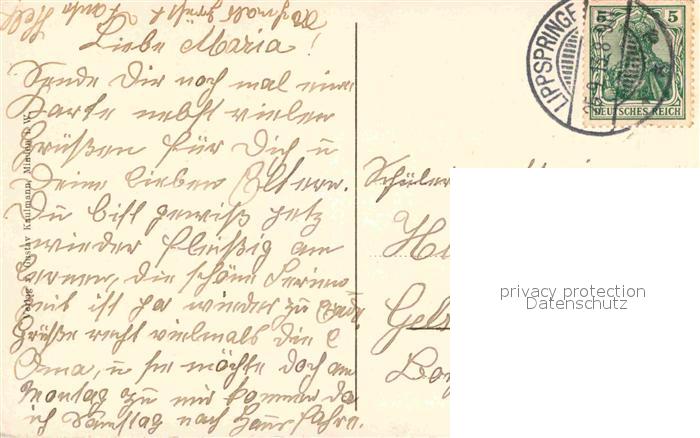 Nochmals grüßt Tante Helf
Liebe Maria!
Sende Dir noch mal eine
Karte nebst vielen
Grüßen für Dich u
Deine lieben Eltern.
Du bist gewiß jetz
wieder fleißig am
lernen, die schöne Ferien
zeit ist ja wieder zu Ende.
Grüße recht vielmals die l
Oma, u sie möchte doch am
Montag zu mir kommen da
ich Samstag nach Haus fahre.
Verlag v. Gustav Kaulmann, Minden i. W.
LIPPSPRINGE
5 5
DEUTSCHES REICH
Schüler
Gels
privacy protection
Datenschutz